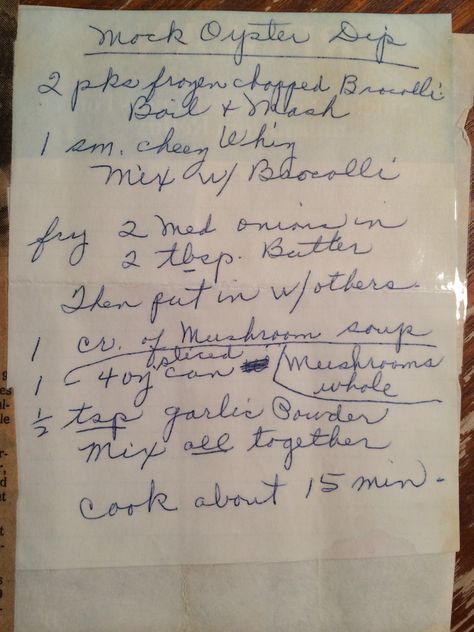 Mock Oyster Dip
2 pks frozen chopped Brocolli
Boil & Mash
1 sm. cheez Whiz
Mix w/ Brocolli
fry 2 med onions in
2 tbsp. Butter
Then put in w/others.
1 cr. of Mushroom soup
sliced
1 4 oz can Mushrooms
whole
½ tsp garlic Powder
Mix all together
cook about 15 min.